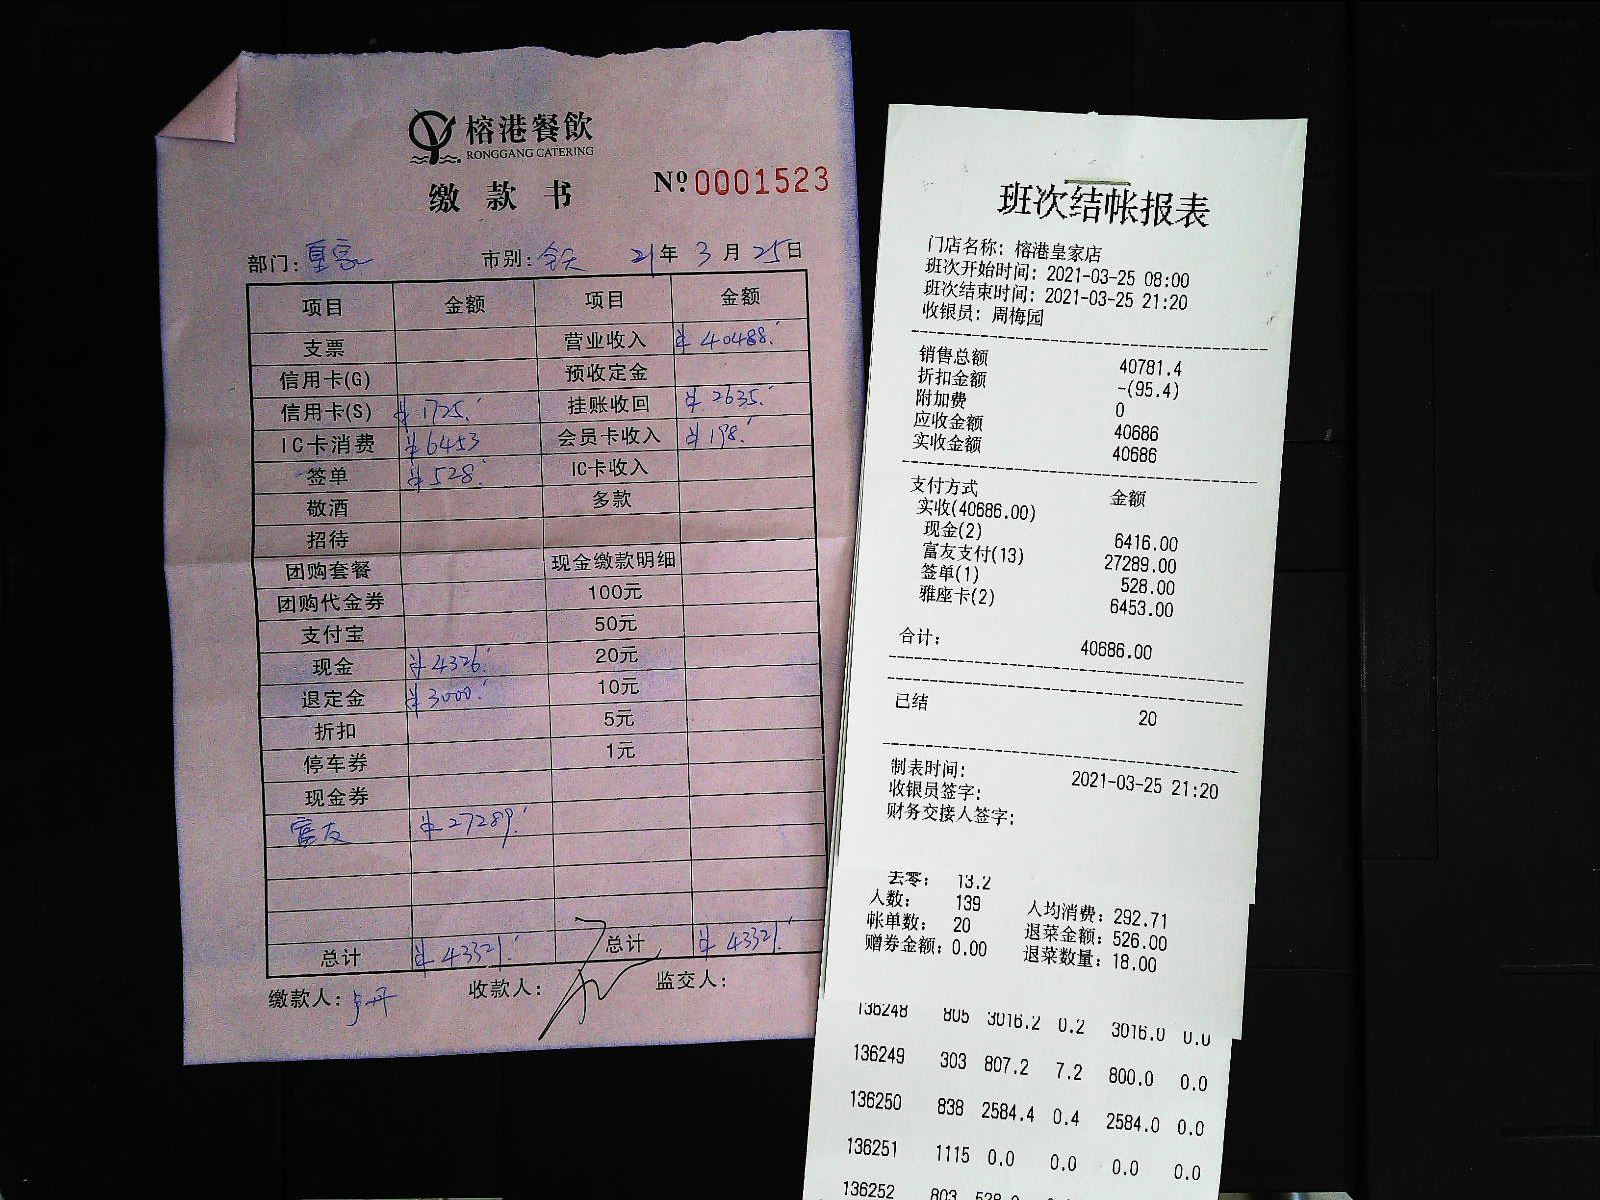 榕港餐飲
RONGGANG CATERING
缴款书
№0001523
部门：皇家 市别：全天 21年3月25日
项目 金额 项目 金额
支票 营业收入 ¥40488.
信用卡(G) 预收定金
信用卡(S) ¥1725. 挂账收回 ¥2635.
IC卡消费 ¥6453 会员卡收入 ¥198.
签单 ¥528. IC卡收入
敬酒 多款
招待
团购套餐 现金缴款明细
团购代金券 100元
支付宝 50元
现金 ¥4326. 20元
退定金 ¥3000. 10元
折扣 5元
停车券 1元
现金券
富友 ¥27289.
总计 ¥43321. 总计 ¥43321.
缴款人： 收款人： 监交人：
班次结帐报表
门店名称：榕港皇家店
班次开始时间：2021-03-25 08:00
班次结束时间：2021-03-25 21:20
收银员：周梅园
销售总额 40781.4
折扣金额 -(95.4)
附加费 0
应收金额 40686
实收金额 40686
支付方式 金额
实收(40686.00)
现金(2) 6416.00
富友支付(13) 27289.00
签单(1) 528.00
雅座卡(2) 6453.00
合计： 40686.00
已结 20
制表时间： 2021-03-25 21:20
收银员签字：
财务交接人签字：
去零： 13.2
人数： 139 人均消费：292.71
帐单数： 20 退菜金额：526.00
赠券金额：0.00 退菜数量：18.00
136248 805 3016.2 0.2 3016.0 0.0
136249 303 807.2 7.2 800.0 0.0
136250 838 2584.4 0.4 2584.0 0.0
136251 1115 0.0 0.0 0.0 0.0
136252 803